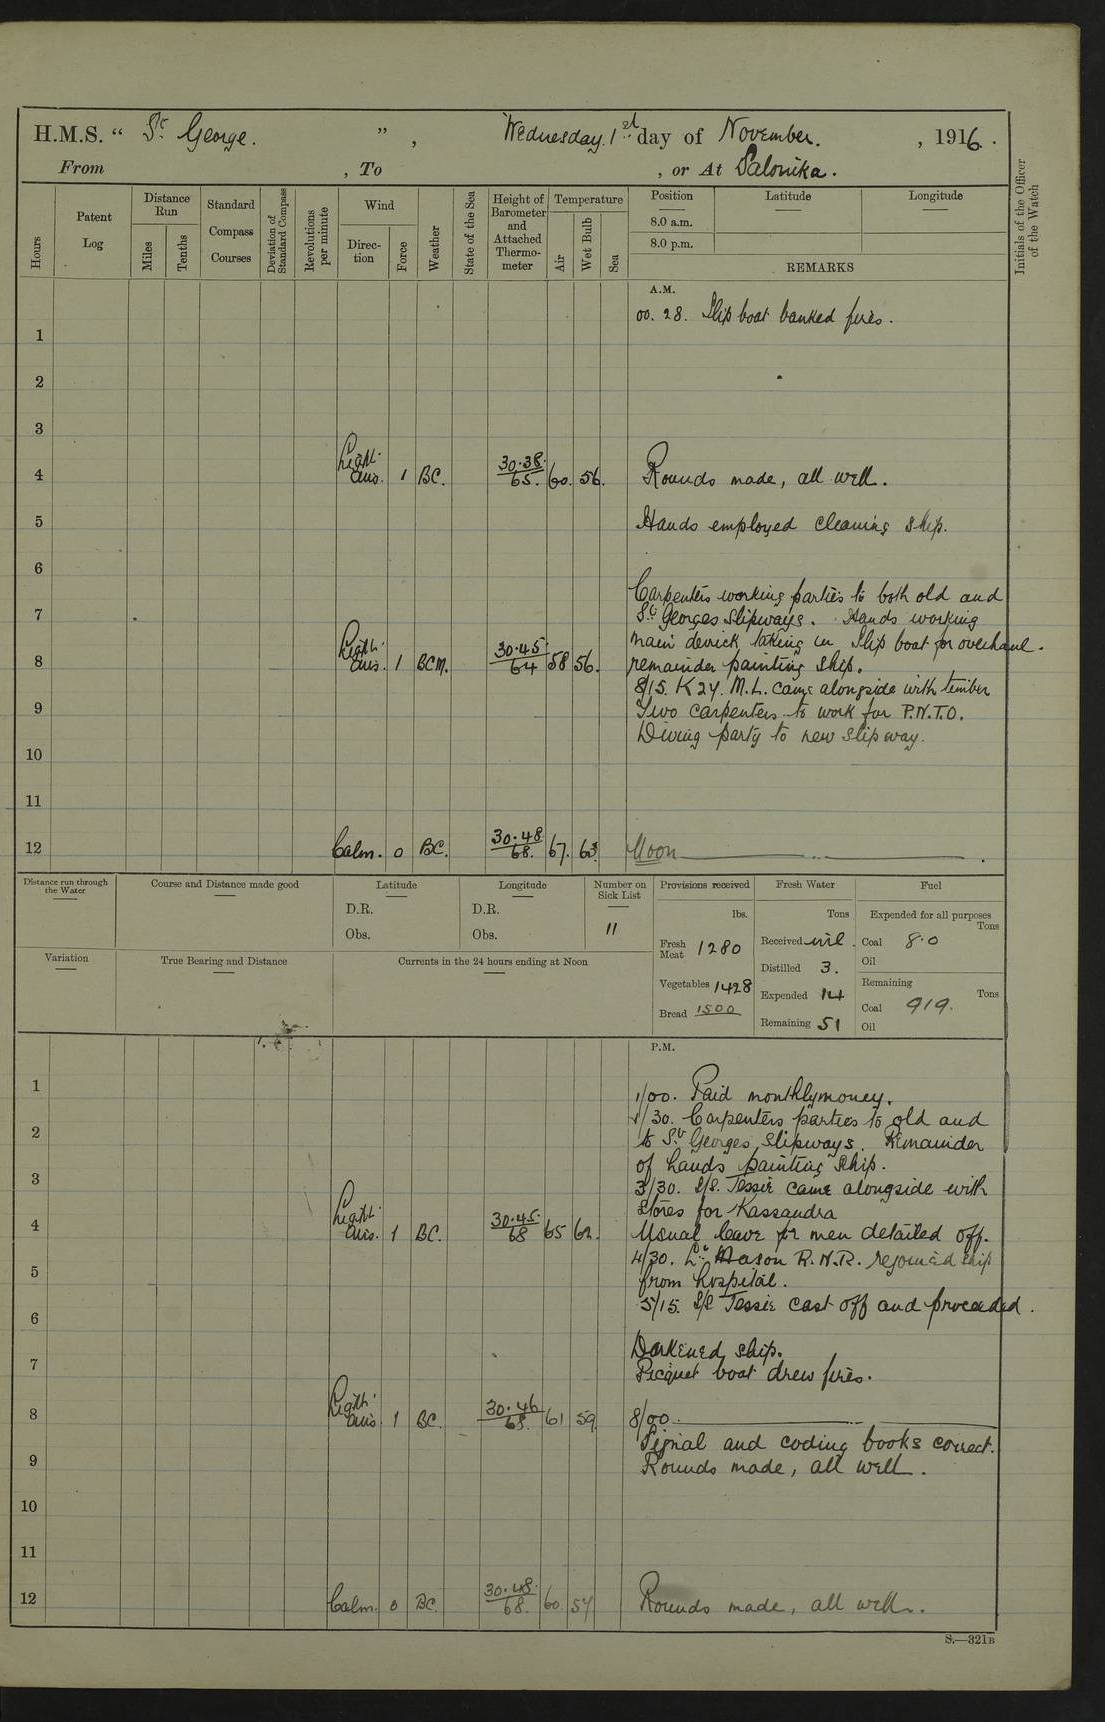 H.M.S. “ St. George. ” , Wednesday. 1st day of November. , 1916 .
From , To , or At Salonika.
Hours
Patent Log
Distance Run
Miles
Tenths
Standard Compass Courses
Deviation of Standard Compass
Revolutions per minute
Wind
Direc-tion
Force
Weather
State of the Sea
Height of Barometer and Attached Thermo-meter
Temperature
Air
Wet Bulb
Sea
Position
Latitude
Longitude
8.0 a.m.
8.0 p.m.
REMARKS
Initials of the Officer of the Watch
A.M.
00. 28. Slip boat banked fires.
1
2
3
4 Light airs. 1 BC. 30.38. 65. 60. 56. Rounds made, all well.
5 Hands employed cleaning ship.
6
Carpenters working parties to both old and
7 St. Georges slipways. Hands working
main derrick, taking in slip boat for overhaul.
8 Light airs. 1 BCM. 30.45 64 58 56. remainder painting ship.
8/15. K 24. M.L. came alongside with timber
9 Two carpenters to work for P.N.T.O.
Diving party to new slipway.
10
11
12 Calm. 0 BC. 30.48 68. 67. 63. Noon
Distance run through the Water
Course and Distance made good
Latitude
D.R.
Obs.
Longitude
D.R.
Obs.
Number on Sick List
11
Provisions received
lbs.
Fresh Meat 1280
Vegetables 1428
Bread 1500
Fresh Water
Tons
Received nil.
Distilled 3.
Expended 14
Remaining 51
Fuel
Expended for all purposes
Tons
Coal 8.0
Oil
Remaining
Tons
Coal 919.
Oil
Variation
True Bearing and Distance
Currents in the 24 hours ending at Noon
P.M.
1 1/00. Paid monthly money.
1/30. Carpenters parties to old and
2 to St. Georges slipways. Remainder
of hands painting ship.
3 3/30. S/S. Jessie came alongside with
stores for Kassandra
4 Light airs. 1 BC. 30.45. 68 65 62. Usual leave for men detailed off.
4/30. Lt. Mason R.N.R. rejoined ship
5 from hospital.
5/15. S/S Jessie cast off and proceeded.
6
Darkened ship.
7 Picquet boat drew fires.
8 Light airs 1 BC. 30.46 68. 61 59. 8/00.
Signal and coding books correct.
9 Rounds made, all well.
10
11
12 Calm. 0 BC. 30.48. 68. 60. 57 Rounds made, all well.
S.—321B